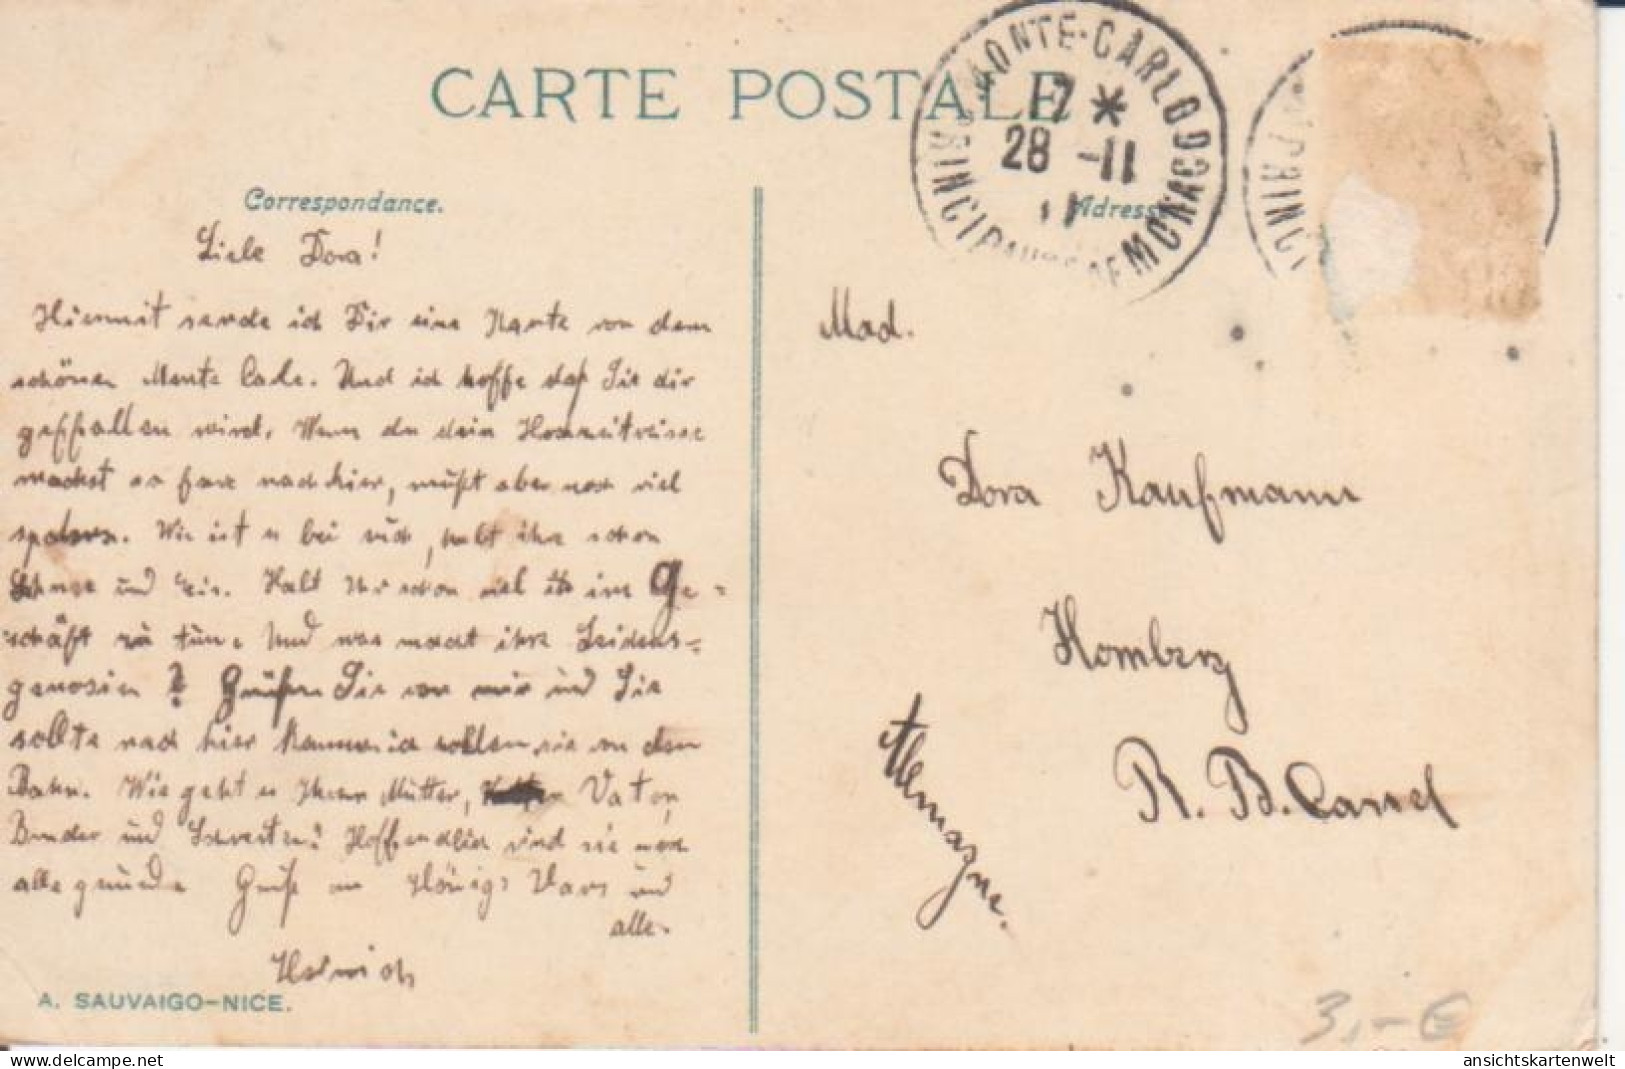 CARTE POSTALE
MONTE-CARLO
17 *
28 -11
11
PRINCIPAUTÉ DE MONACO
PRINCI
Correspondance.
Adresse
Liebe Dora!
Hiermit sende ich Dir eine Karte von dem
schönen Monte Carlo. Und ich hoffe daß Sie dir
geffallen wird. Wenn du dein Hochzeitreise
machst so fare nach hier, mußt aber noch viel
sparen. Wie ist es bei euch, habt ihr schon
Schnee und Eis. Habt Ihr schon viel im Ge-
schäft zu tun. Und was macht ihre Leidens-
genosin? Grüßen Sie von mir und Sie
sollte nach hier kommen ich wollen sie an den
Bahn. Wie geht es Ihrer Mutter, Vater,
Bruder und Schwester? Hoffendlich sind sie noch
alle gesunde Gruß an Königs Hans und
alle.
Heinrich
A. SAUVAIGO-NICE.
Mad.
Dora Kaufmann
Homberg
R. B. Cassel
Allemagne.
3,- €
ansichtskartenwelt
delcampe.net